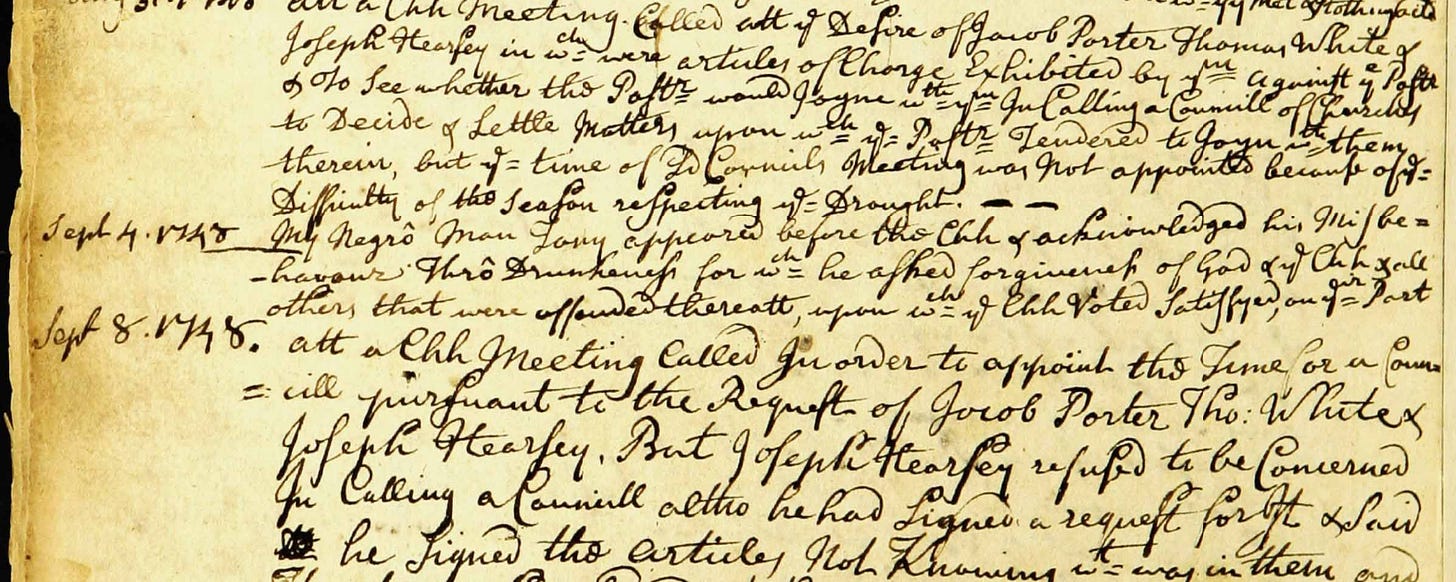 att a Chh Meeting. Called att ye Desire of Jacob Porter Thomas White &
Joseph Hearsey in wch were articles of Charge Exhibited by ym against ye Pastr
& To See whether the Pastr would Joyne wth ym In Calling a Councill of Churches
to Decide & Settle Matters upon wch ye Pastr Tendered to Joyn wth them
therein, but ye time of Sd Councils Meeting was Not appointed because of ye
Difficulty of the Season respecting ye Drought. — —
Sept 4. 1748 My Negrô Man Tony appeared before the Chh & acknowledged his Misbe=
-haviour Thrô Drunkeness for wch he asked forgiveness of God & ye Chh & all
others that were offended thereatt, upon wch ye Chh Voted Satisfyed, on yeir Part
Sept 8. 1748. att a Chh Meeting Called In order to appoint the Time for a Coun=
=cill pursuant to the Request of Jacob Porter Tho: White &
Joseph Hearsey, But Joseph Hearsey refused to be Concerned
In Calling a Councill altho he had Signed a request for it & Said
he Signed the articles Not Knowing wt was in them and